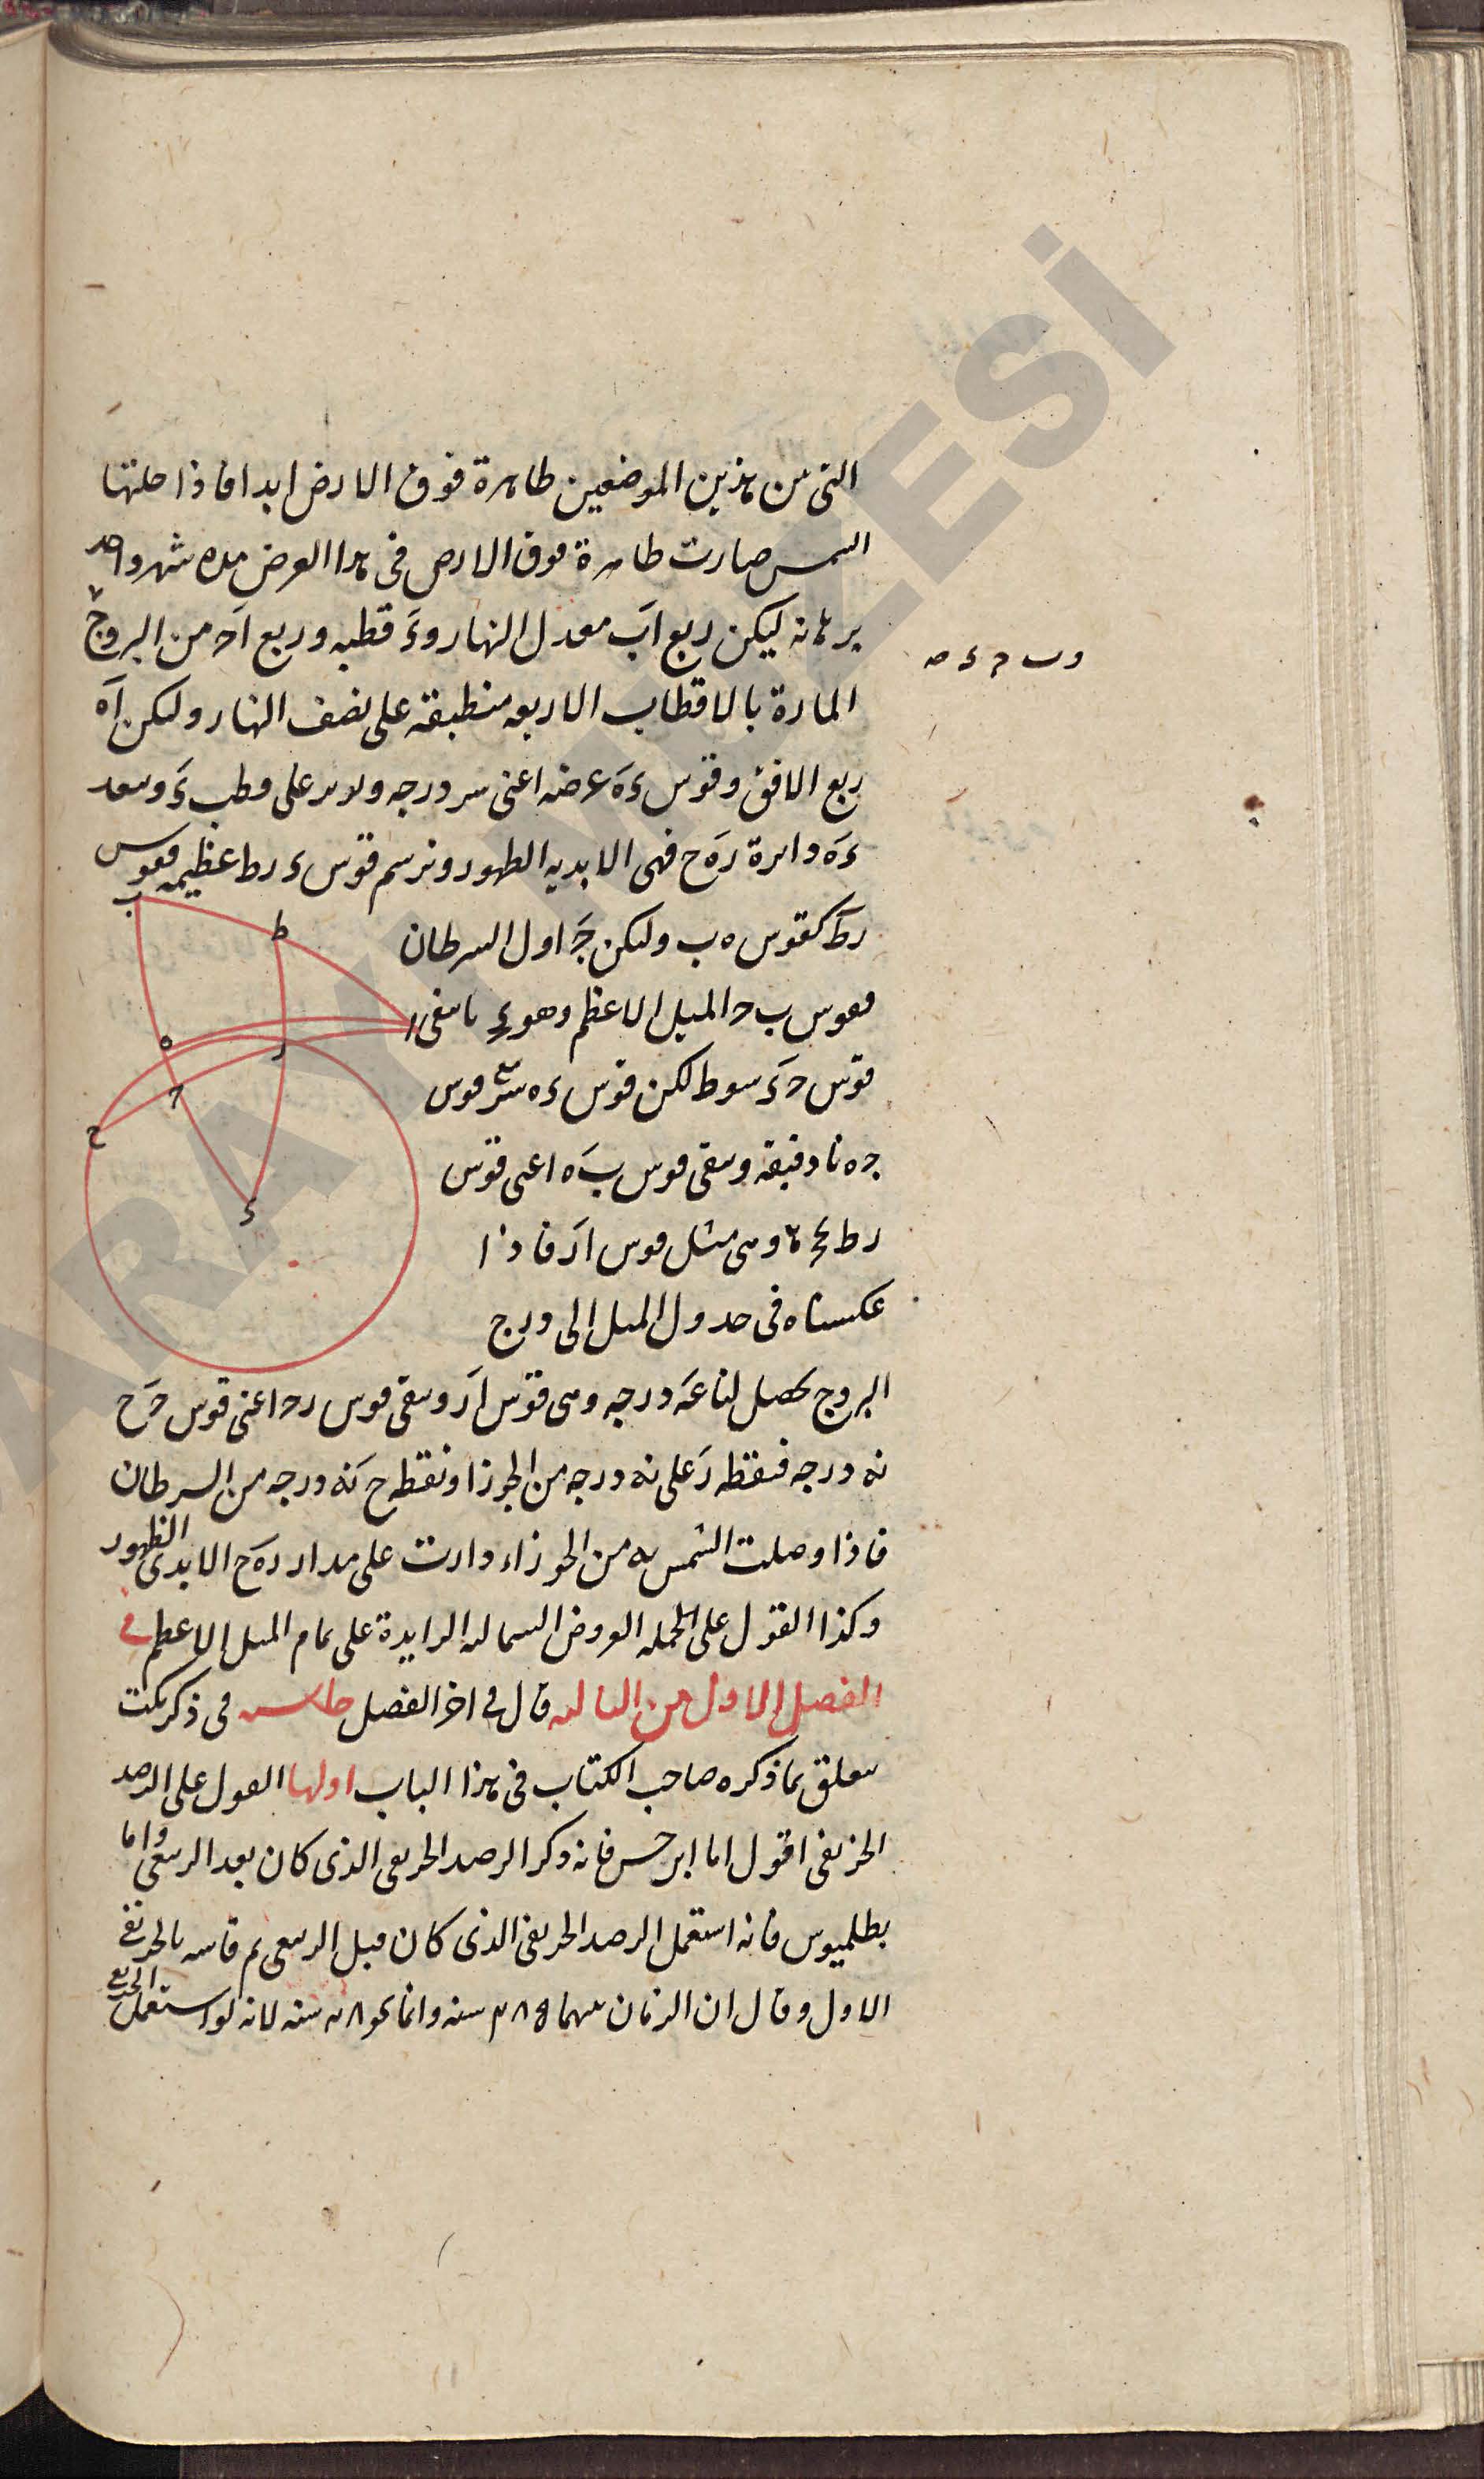 التى من هذين الموضعين ظاهرة فوق الارض ابدا فاذا حلتها
الشمس صارت ظاهرة فوق الارض فى هذا العرض مدة شهر واحد
برهانه ليكن ربع اب معدل النهار وء قطبه وربع اح من البروج
وب م ء ه
المارة بالاقطاب الاربعه منطبقة على نصف النهار وليكن اه
ربع الافق وقوس ءه عرضه اعنى سر درجه وندير على قطب ء وببعد
ءه دايرة ره ح فهى الابديه الظهور ونرسم قوس ء رط عظيمه فقوس
رط كقوس ه ب وليكن ج اول السرطان
فقوس ب ح الميل الاعظم وهو يبقى
قوس ح ء سوط لكن قوس ءه سر فقوس
ج ه نا دقيقه وبقى قوس ب ه اعنى قوس
رط وهى مثل قوس ار فاذا
عكسناه فى جدول الميل الى درج
البروج يحصل لنا عه درجه وهى قوس ار وبقى قوس رح اعنى قوس ح ح
يه درجه فنقطه ر على يه درجه من الجوزا ونقطه ح يه درجه من السرطان
فاذا وصلت الشمس يه من الجوزاء دارت على مدار ره ح الابدى الظهور
وكذا القول على الجمله العروض الشماليه الزايدة على تمام الميل الاعظم فى
الفصل الاول من الثالثه قال فى اخر الفصل فى ذكر نكت
تتعلق بما ذكره صاحب الكتاب فى هذا الباب اولها القول على الرصد
الخريفى اقول اما ابرخس فانه ذكر الرصد الخريفى الذى كان بعد الربيعى واما
بطلميوس فانه استعمل الرصد الخريفى الذى كان قبل الربيعى ثم قاسه بالخريفى
الاول وقال ان الزمان بينهما ٢٨٥ سنه وانما هو سنه لانه لو استعمل الخريفى
ب
ط
ا
ه
ر
ح
ح
ء